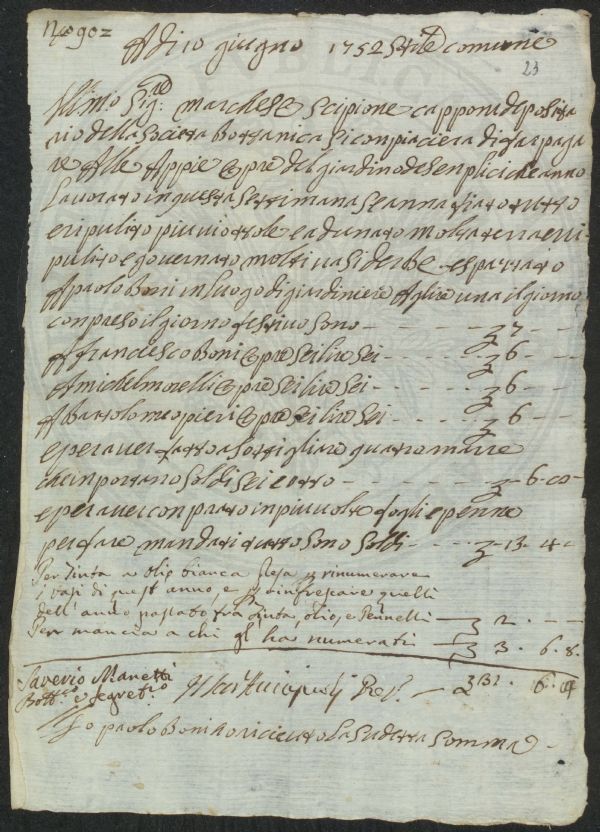 No 902
Adi 10 giugno 1752 Stile comune
23
Illmo Sigre marchese Scipione capponi deposita
rio della Società Bottanica Si conpiacierà di far paga
re Alle Appie Opre del giardino de senplici che anno
Lavorato in questa Settimana Seanna fiato tutto
e ripulito piu viottole e adunato molta terra e ri
pulito e governato molti vasi derbe e spazzato
A paolo Boni in luogo di giardiniere A lire una il giorno
conpreso il giorno festivo Sono - - - - - 7 - -
A francesco Boni Opre Sei lire Sei - - - - 6 - -
A midel morelli Opre Sei lire Sei - - - - 6 - -
A Bartolomeo pieri Opre Sei lire Sei - - - 6 - -
e per aver fatto asottigliare quatro marre
che inportano Soldi Sei e otto - - - - - 6 - 00 -
e per aver conprato in piu volte fogli e penne
per fare mandati quatto Sono Soldi - - - - 13 - 4 -
Per Tinta a olio bianca stesa p rinumerare
i vasi di quest'anno, e p rinfrescare quelli
dell'anno passato fra Tinta, olio, e Pennelli - 2 . - -
Per mancia a chi gl'ha numerati - 3 . 6 . 8
Saverio Manetti
Bott.co e Segret.rio
31 . 6 . 4
Io paolo Boni o riceuto La Sudetta Somma -